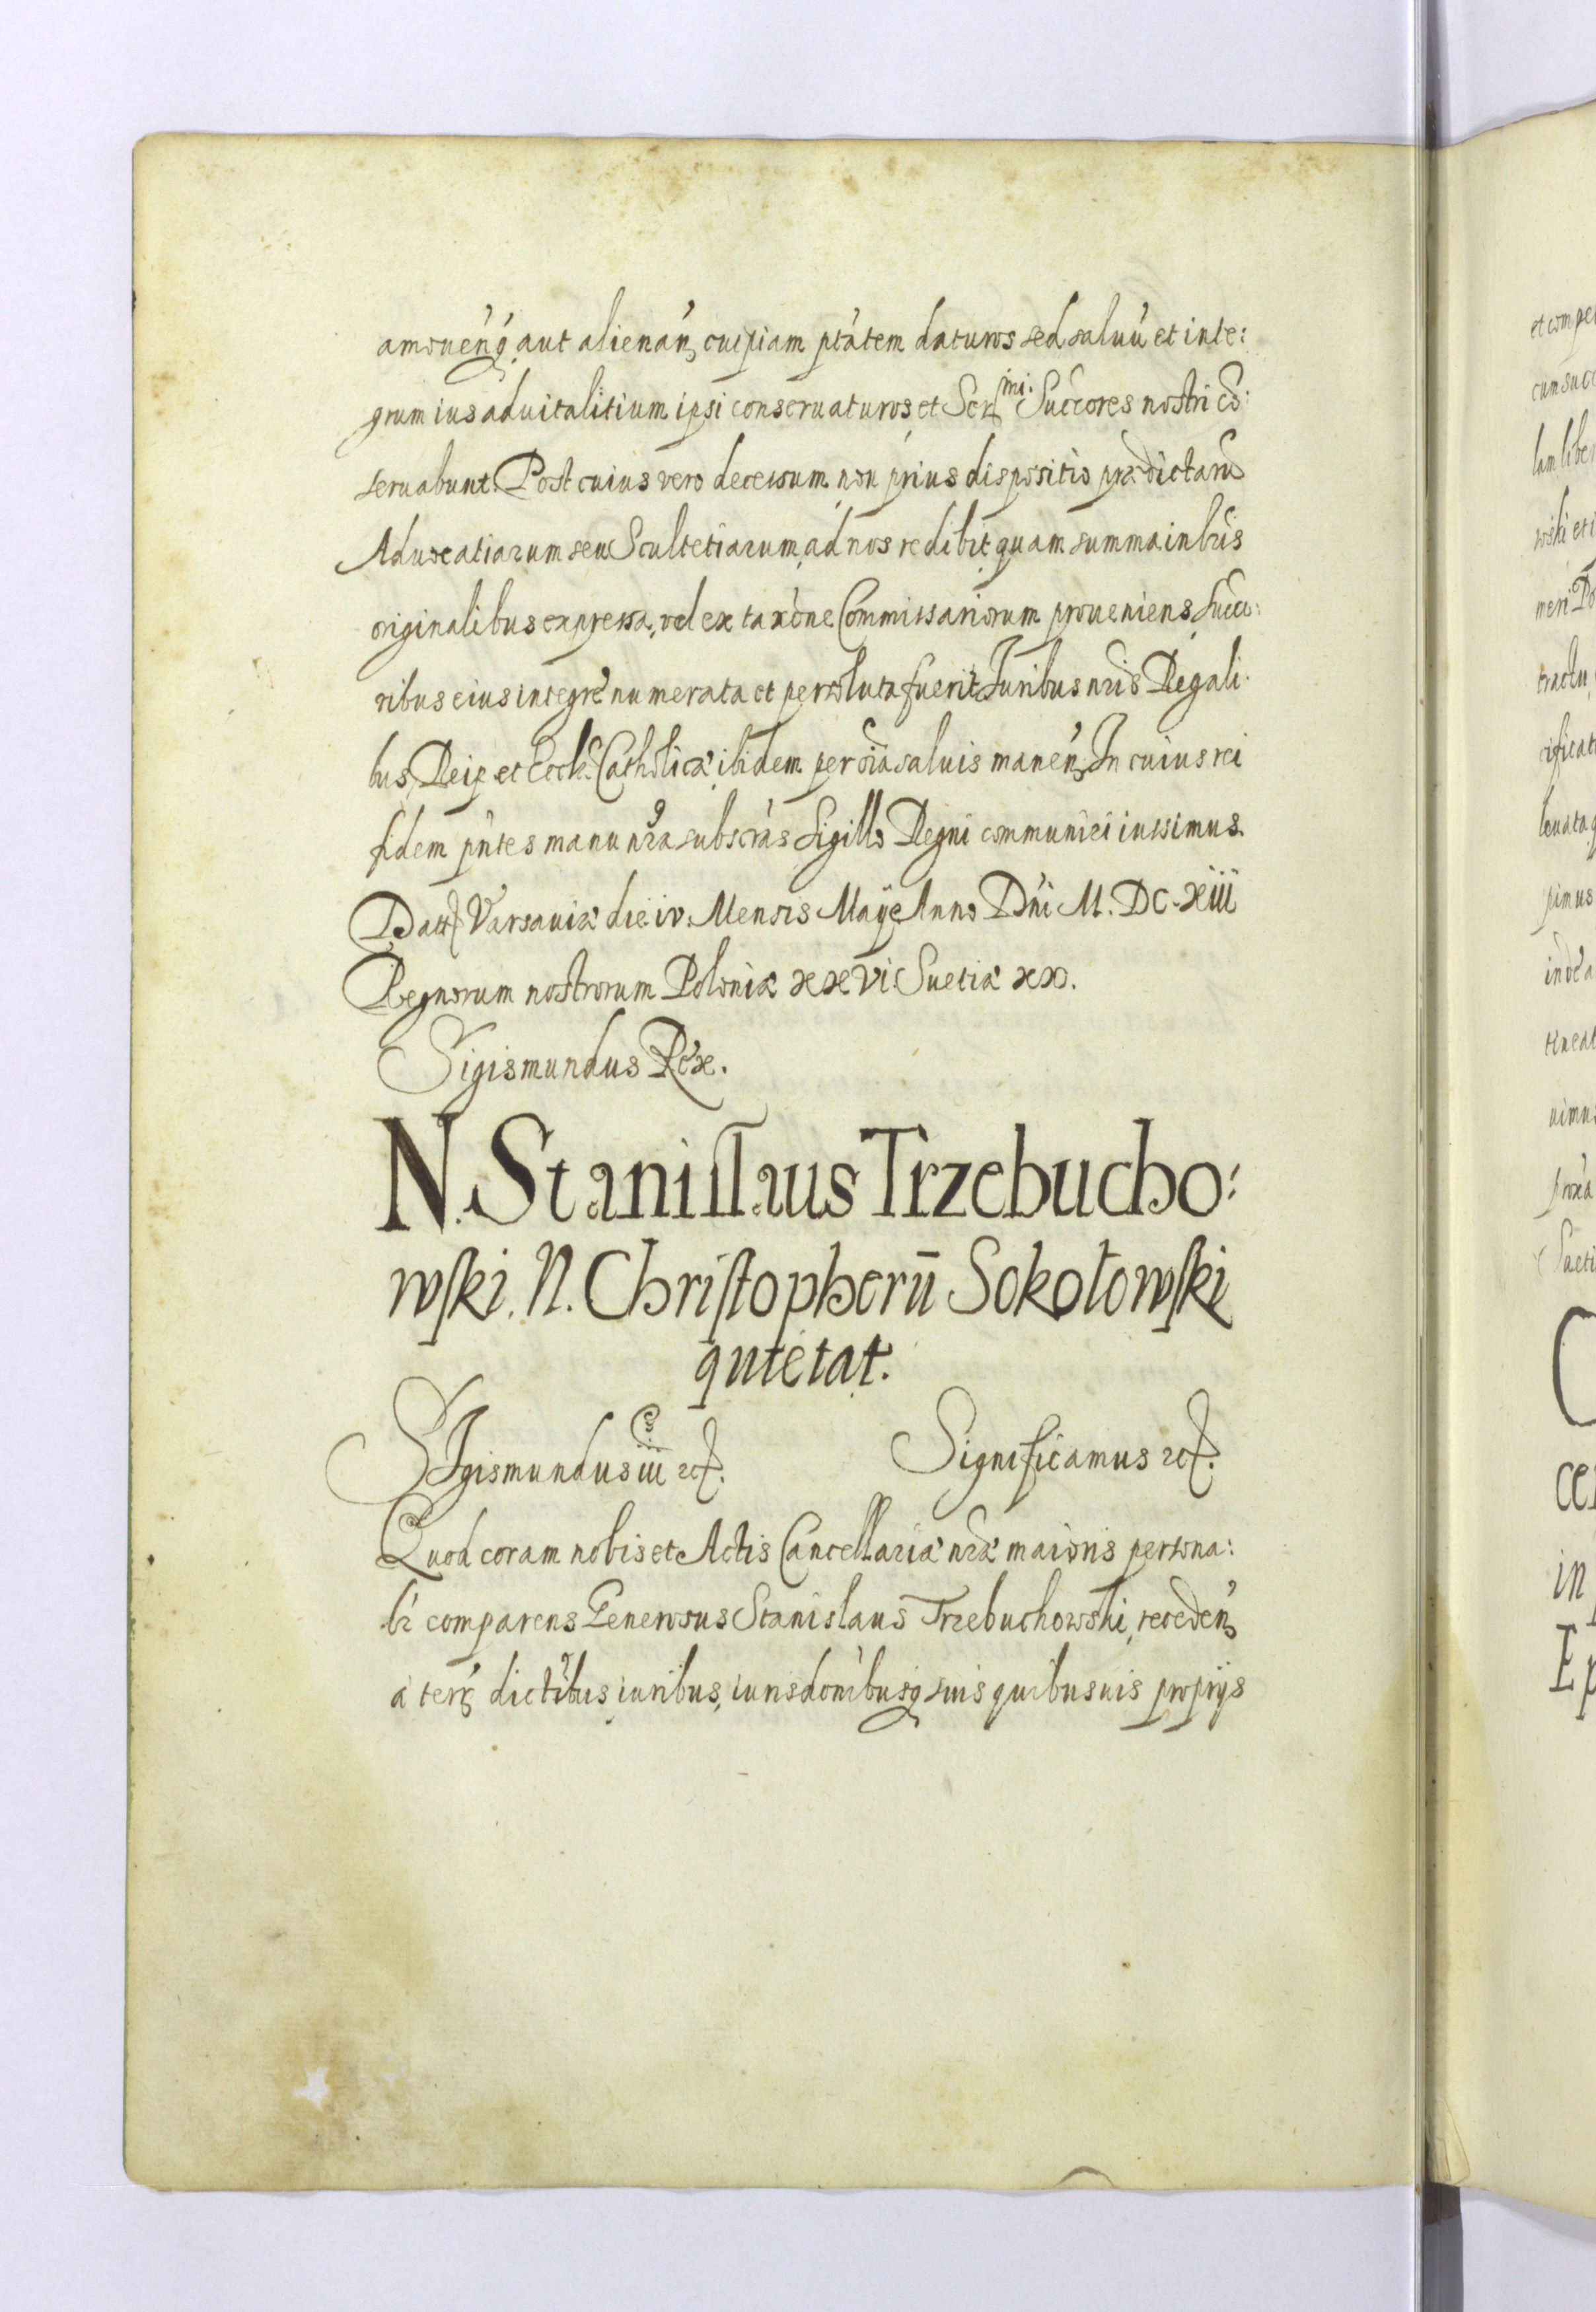 amoueńq aut alienań cuipiam ptátem daturos sed saluú et inte:
grum ius aduitalitium ipsi conseruaturos et Ser mi. Succores nostri cō:
seruabunt. Post cuius vero decessum non prius dispositio prædictarū
Aduocatiarum seu Scultetiarum, ad nos redibit, quam summa in lrīs
originalibus expressa, vel ex taxóne Commissariorum proueniens, Succo:
ribus eius integrè numerata et persoluta fuerit. Juribus nrīs Regali:
bus, Reip. et Eccle Catholicæ, ibidem per oīa saluis maneń. In cuius rei
fidem pńtes manu nrā subscrás Sigillo Regni communiri iussimus.
Datt Varsauiæ die iv. Mensis Maij Anno Dńi M. DC. xiii
Regnorum nostrorum Poloniæ xxvi Suetiæ xx.
Sigismundus Rex.
N. Stanislaus Trzebucho:
wski. N. Christopherū Sokołowski
quietat.
SIgismundus iii etc. Significamus etc.
Quod coram nobis et Actis Cancellariæ nræ maioris persona:
lr comparens Generosus Stanislaus Trzebuchowski, recedeń
à terr dictībus iuribus, iurisdoníbusq suis quibusuis proprijs
et compe
cum succ
lam liber
wski et i
neri Po
tractu
cificat
leuata q
pimus
inde a
tineat
uimus
Sueti
C
cer
in
E p